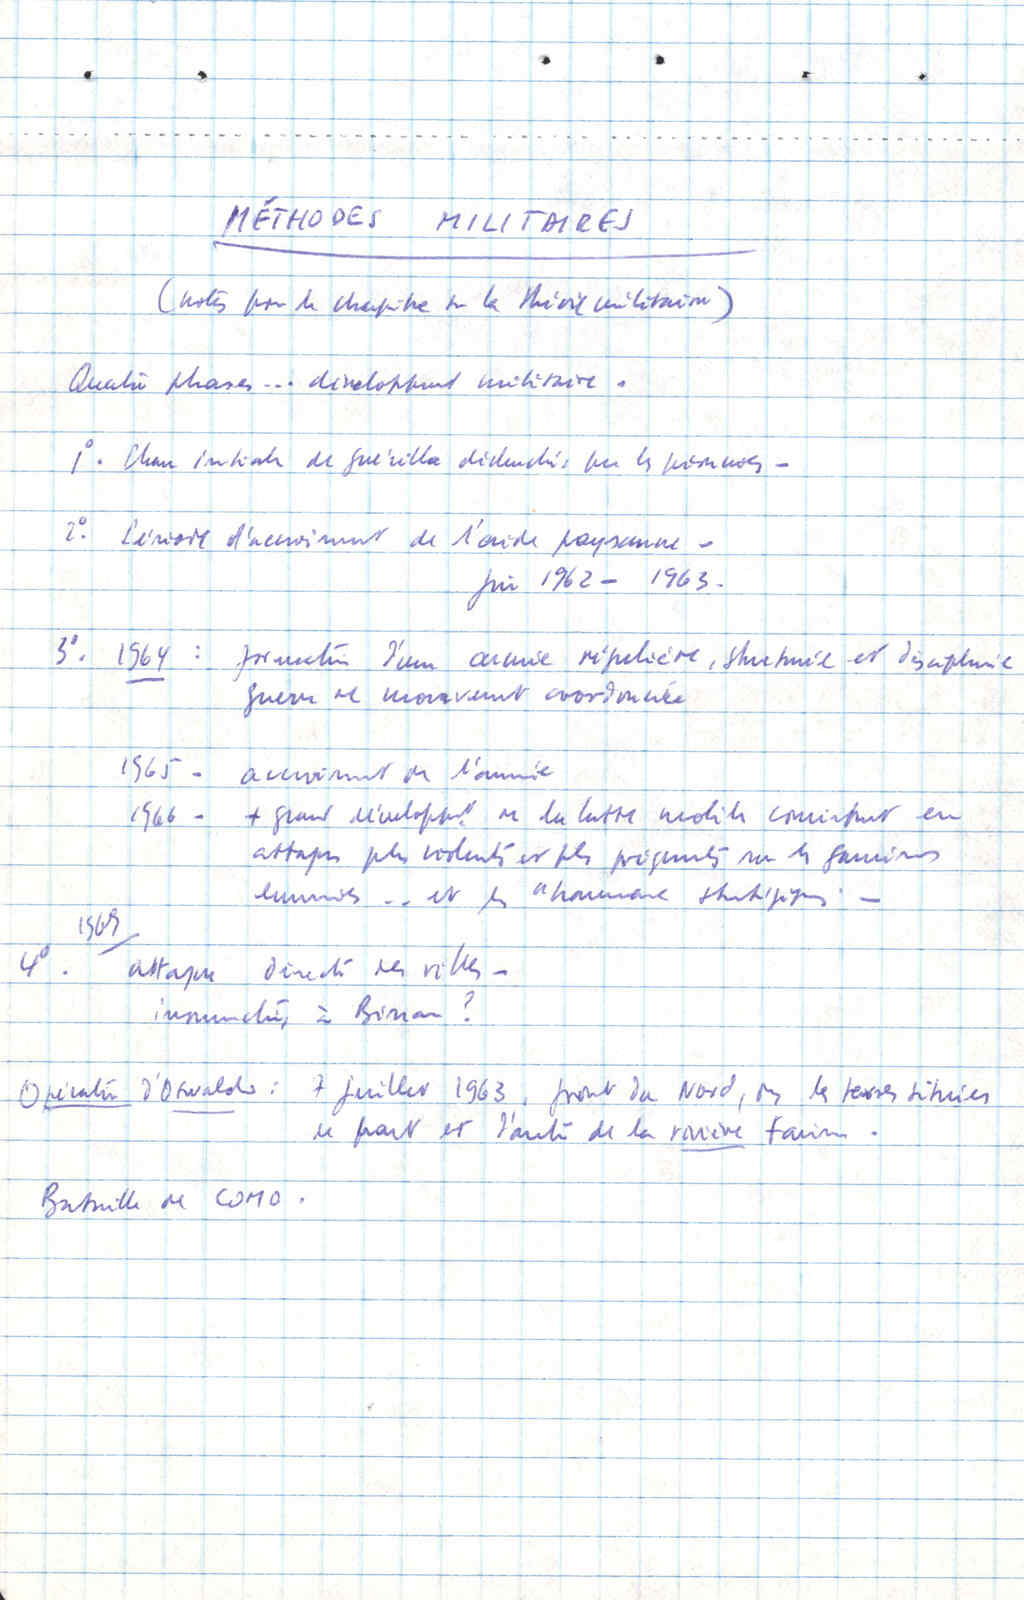 MÉTHODES MILITAIRES
(notes pour le chapitre sur la théorie militaire)
Quatre phases ... développmt militaire.
1°. initiale de guérilla par les
2°. Période d'accroissmt de l'aide paysanne -
1962 - 1963.
3°. 1964 : formation d'une armée régulière, structurée et disciplinée
guerre de mouvement coordonnée
1965 - accroissmt de l'armée
1966 - + grand développt de la lutte mobile consistant en
attaques plus violentes et plus fréquentes sur les garnisons
ennemies ... et les "hameaux stratégiques" -
1969
4°. attaque directe des villes -
à Bissau ?
Opération d'Osvaldo : 7 juillet 1963, front du Nord, les terres situées
de part et d'autre de la rivière Farim.
Bataille de COMO.